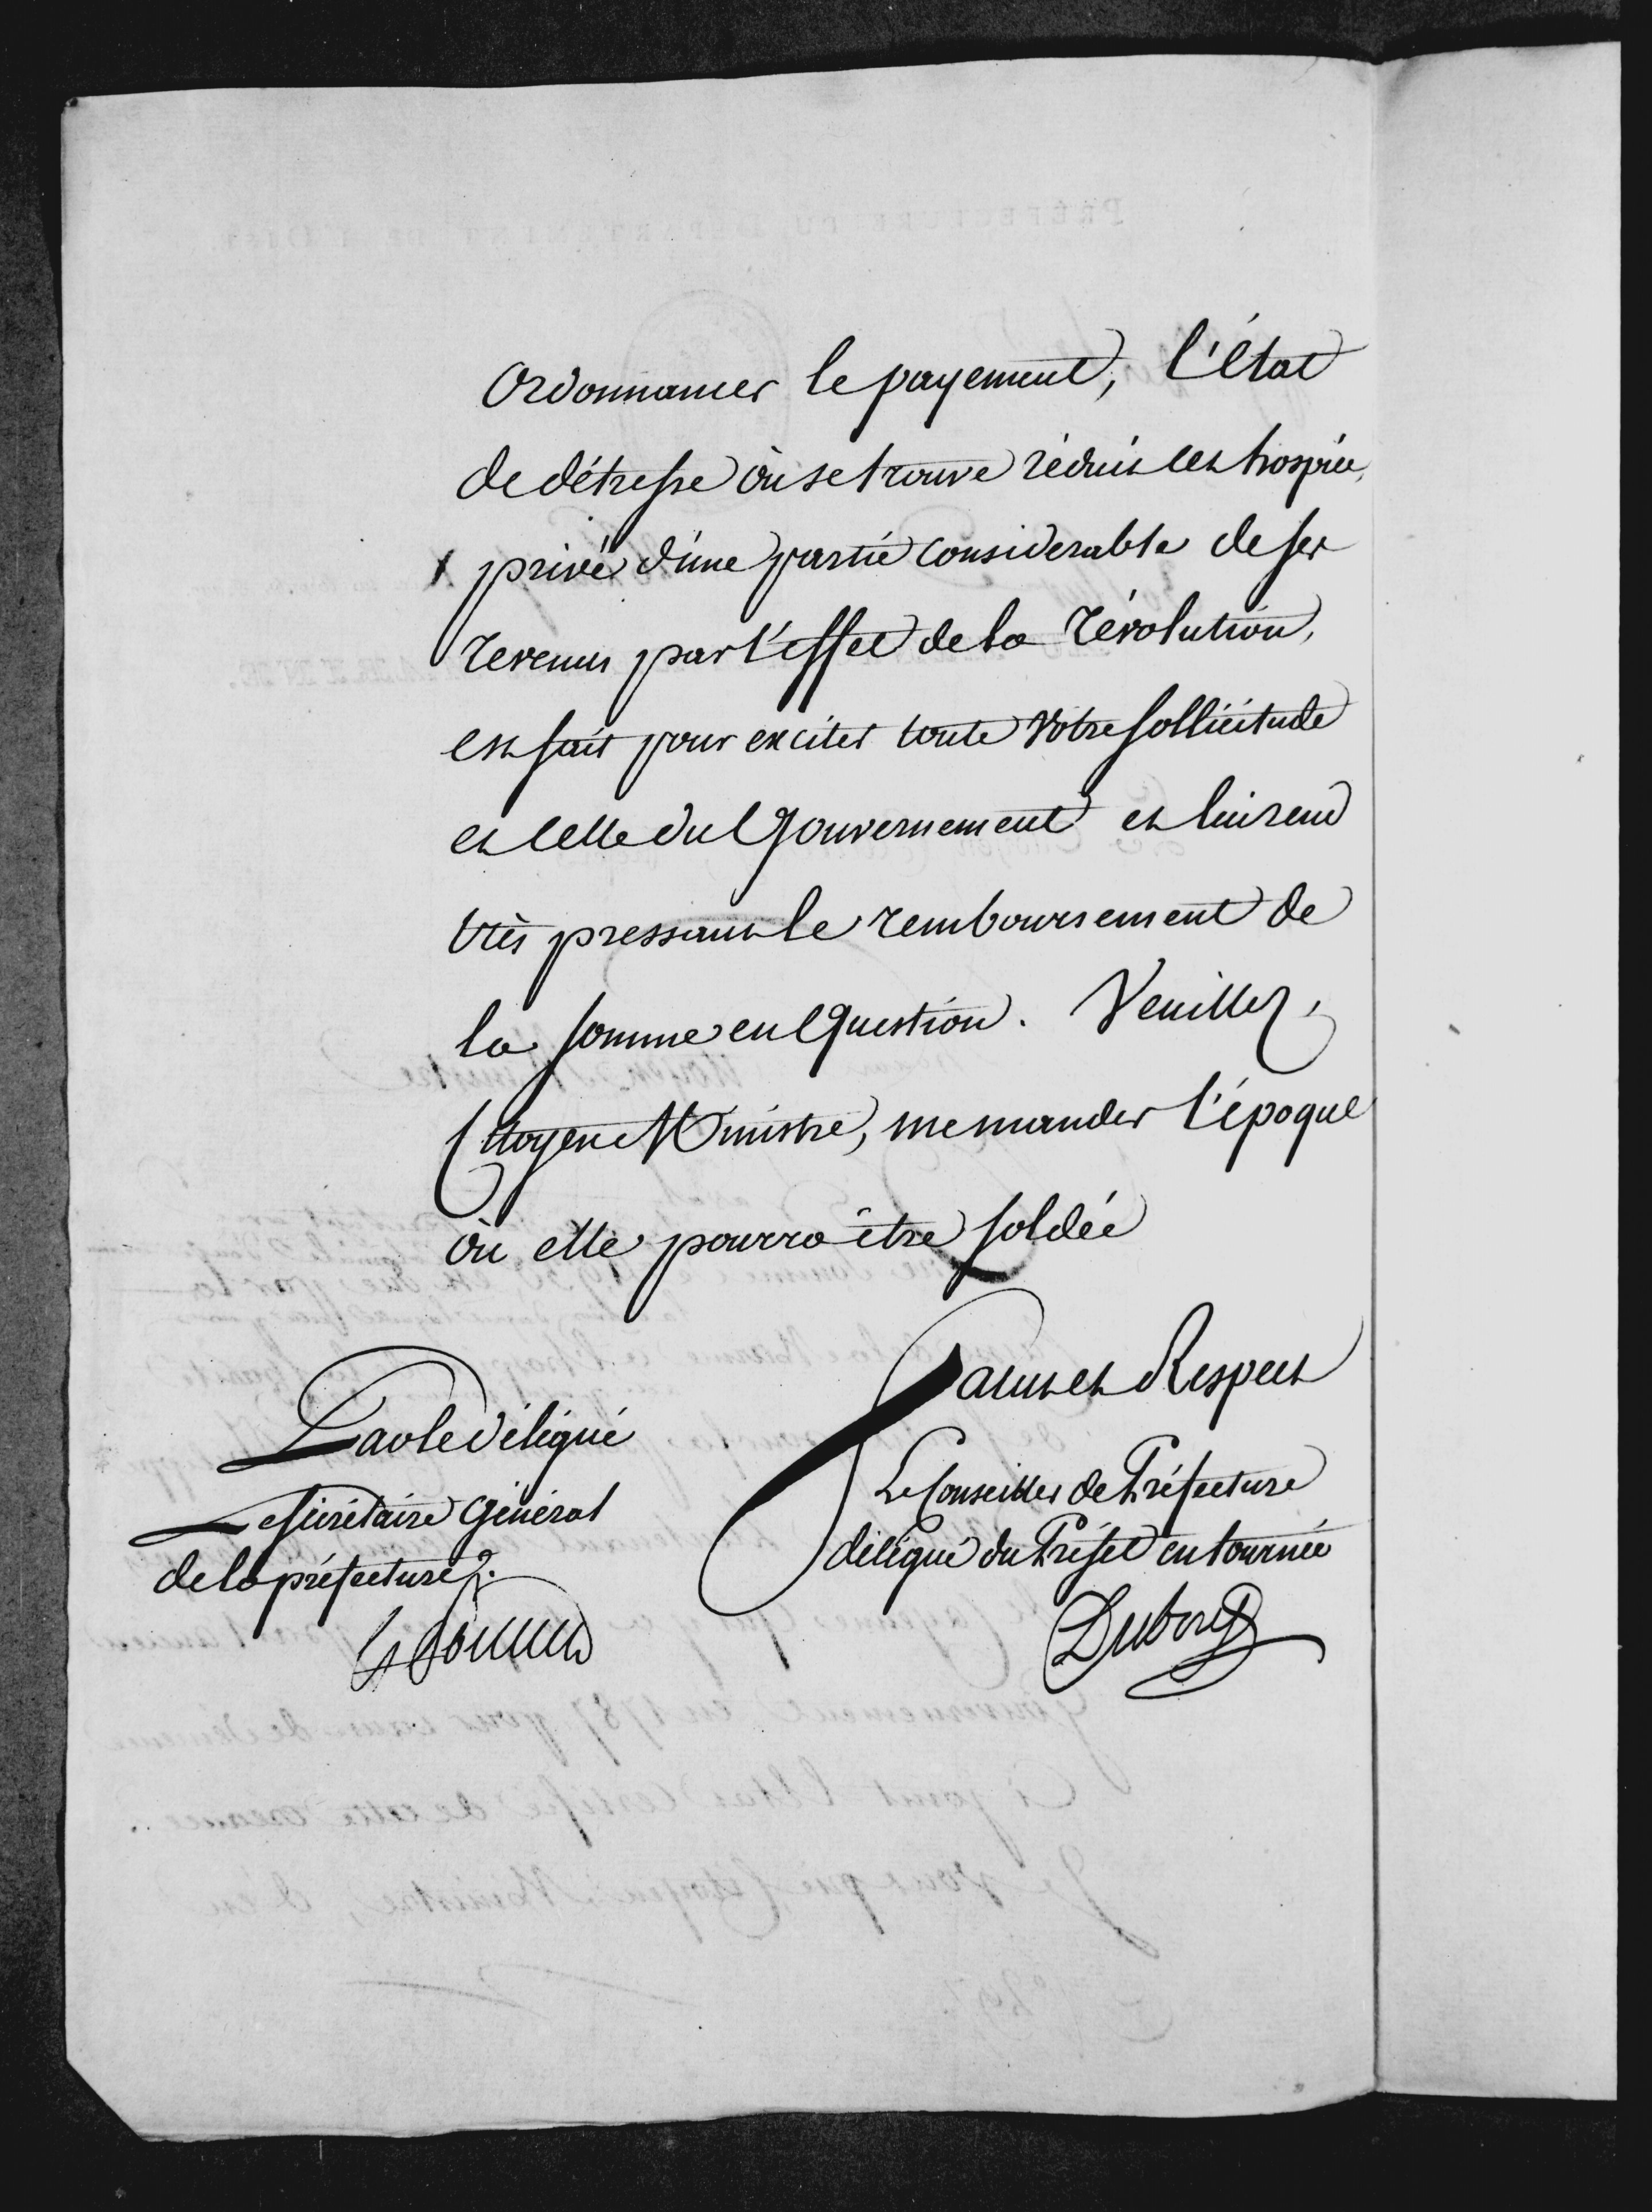 Ordonnancer le payement, l'État
de détresse où se trouve réduit cet hospice,
privé d'une partie considerable de ses
revenus par l'effet de la révolution,
est fait pour exciter toute votre sollicitude
et celle du Gouvernement et lui rend
très pressant le remboursement de
la somme en question. Veuillez,
Citoyen Ministre, me mander l'époque
où elle pourra être soldée
Salut et Respect
Par le délégué
Le Conseiller de Préfecture
Le Sécrétaire Général
délégué du Préfet en tournée
de la préfecture.
Dubourg